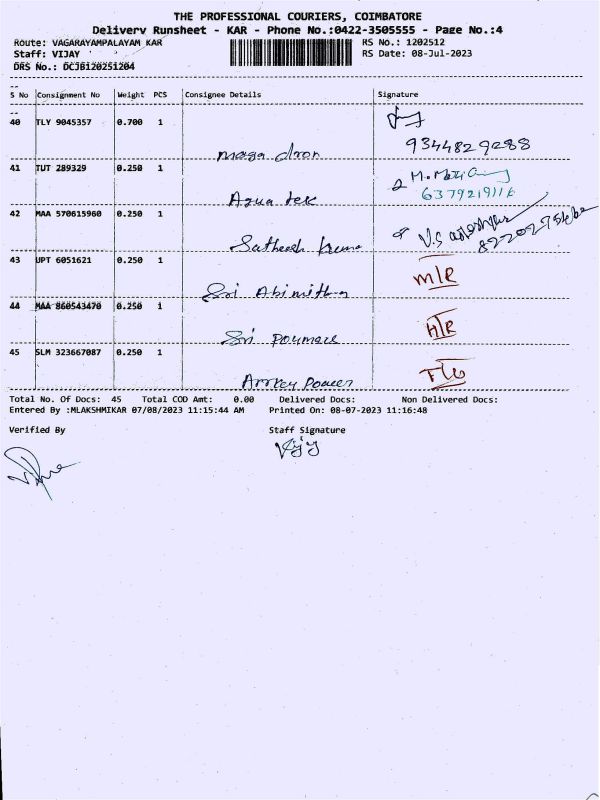 THE PROFESSIONAL COURIERS, COIMBATORE
Delivery Runsheet - KAR - Phone No.:0422-3505555 - Page No.:4
Route: VAGARAYAMPALAYAM KAR RS No.: 1202512
Staff: VIJAY RS Date: 08-Jul-2023
DRS No.: DCJB120251204
S No Consignment No Weight PCS Consignee Details Signature
40 TLY 9045357 0.700 1
maga dron 9344829288
41 TUT 289329 0.250 1
Aqua tek 6379219116
42 MAA 570615960 0.250 1
Satheesh kumar
43 UPT 6051621 0.250 1 M/R
Sri Abimithra
44 MAA 860543470 0.250 1 H/R
Sri
45 SLM 323667087 0.250 1
Power
Total No. Of Docs: 45 Total COD Amt: 0.00 Delivered Docs: Non Delivered Docs:
Entered By :MLAKSHMIKAR 07/08/2023 11:15:44 AM Printed On: 08-07-2023 11:16:48
Verified By Staff Signature
Vijy